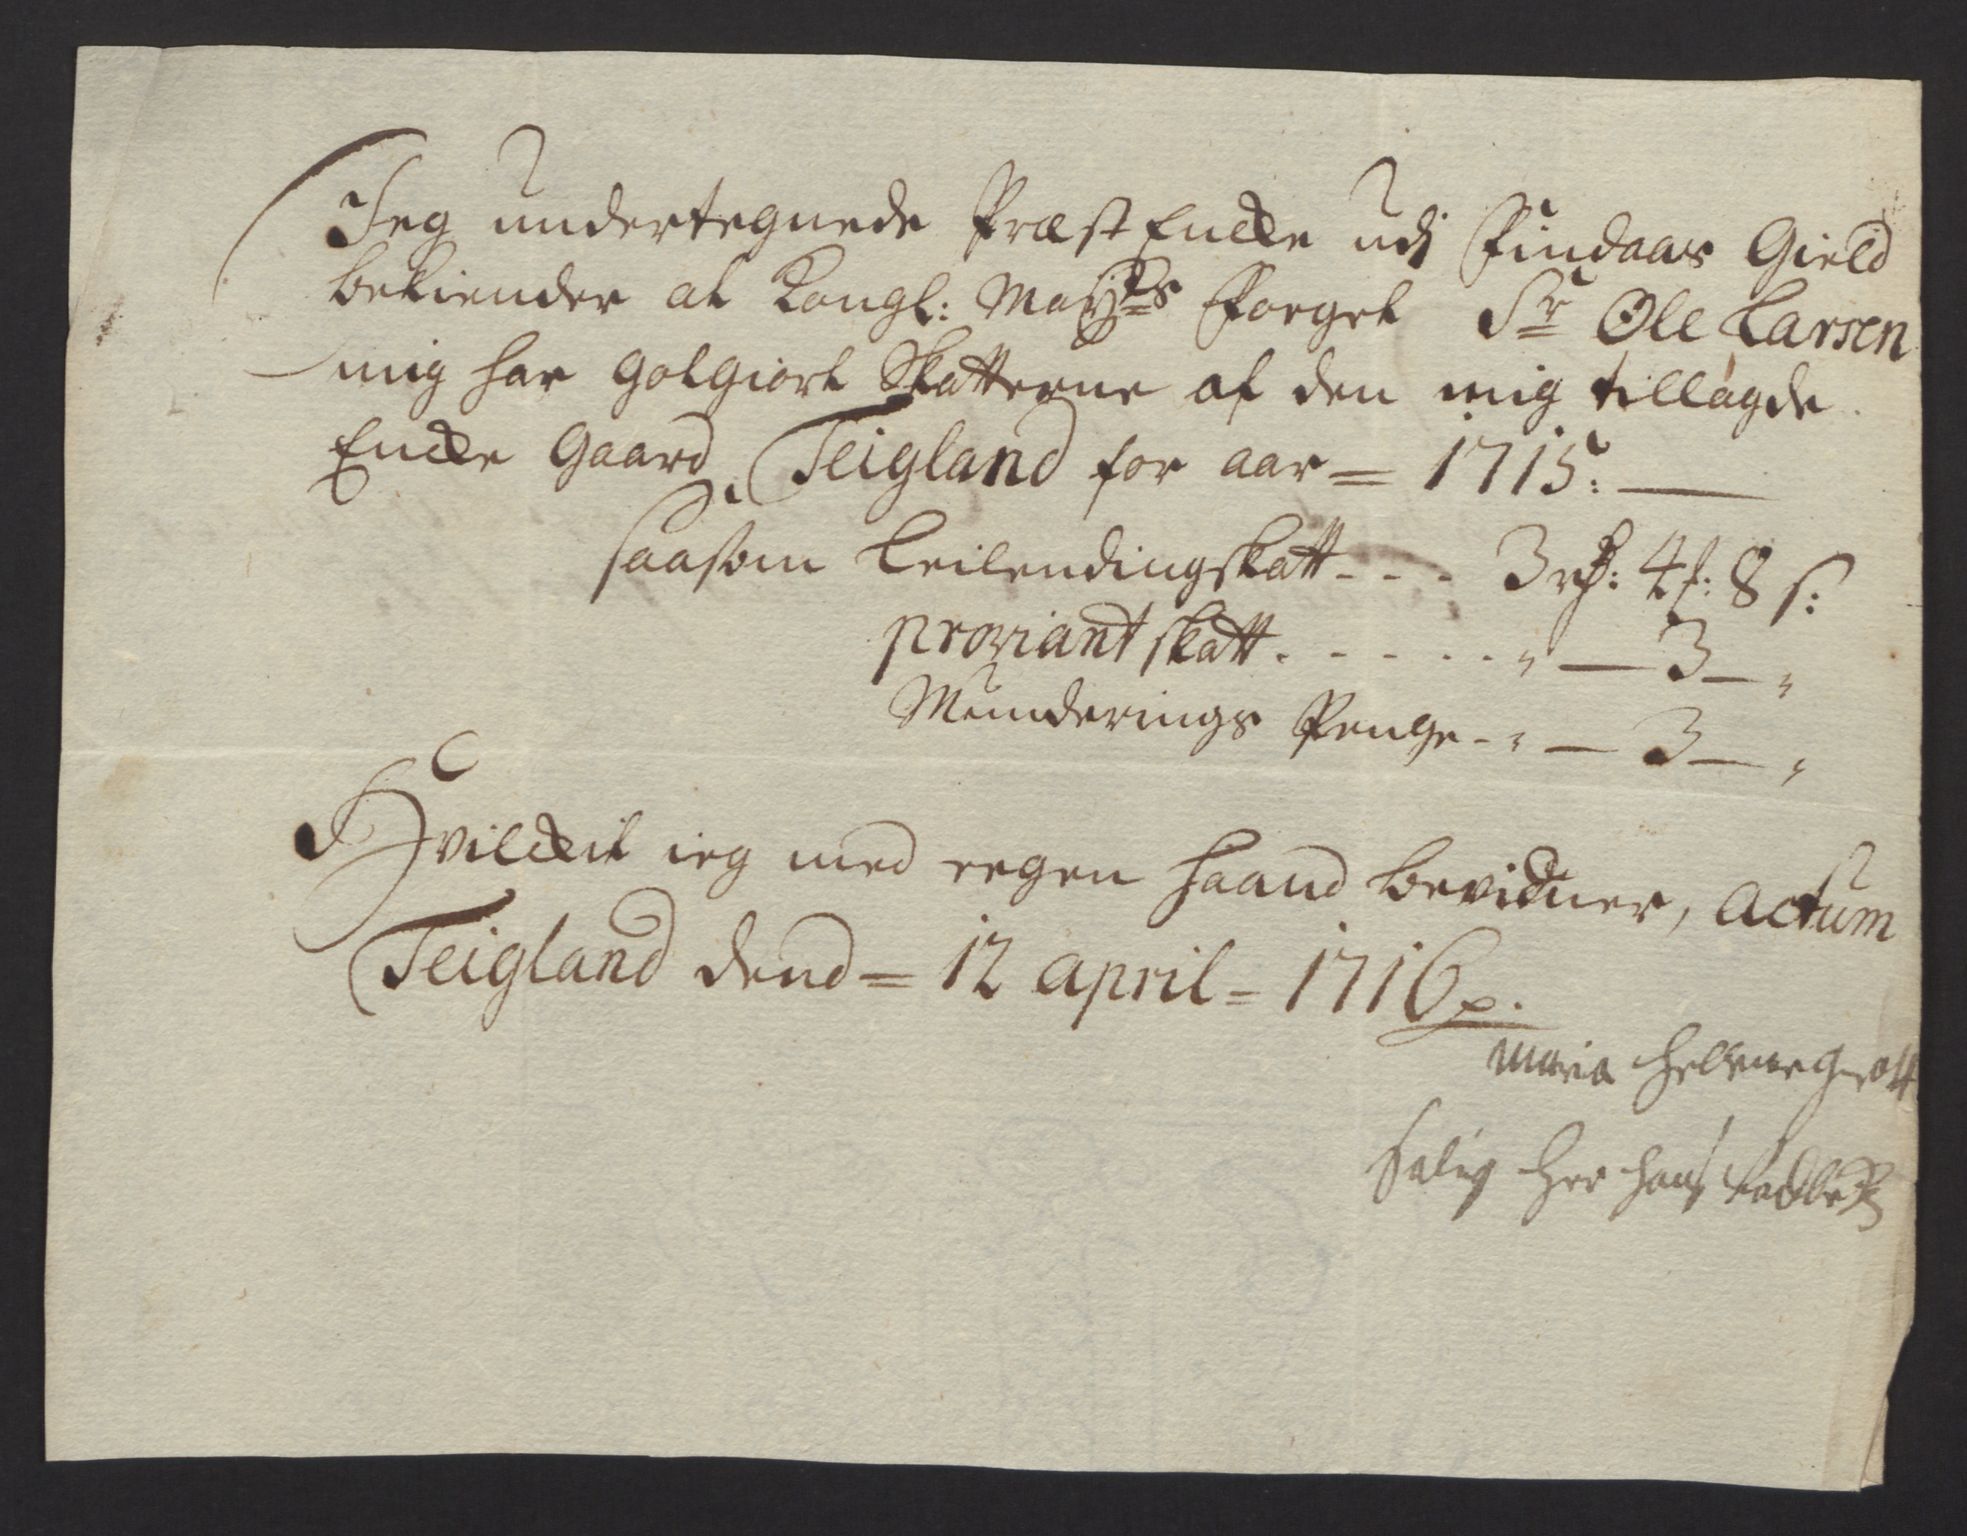 Jeg undertegnede Præst Encke udj Findaas Gield
bekiender at Kongl: May:ts Foeget Sr Ole Larsen
mig har Gotgiort Skatterne af den mig tillagde
Encke Gaard Teigland for aar = 1715:
saasom Leilendingskatt - - - 3 rd: 4 f: 8 s:
proviant skatt - - - - - " — 3 — "
Munderings Penge - " — 3 — "
Hvilcket ieg med eegen Haand bevidner, Actum
Teigland dend = 12 april = 1716
Maria
Salig Her Hans